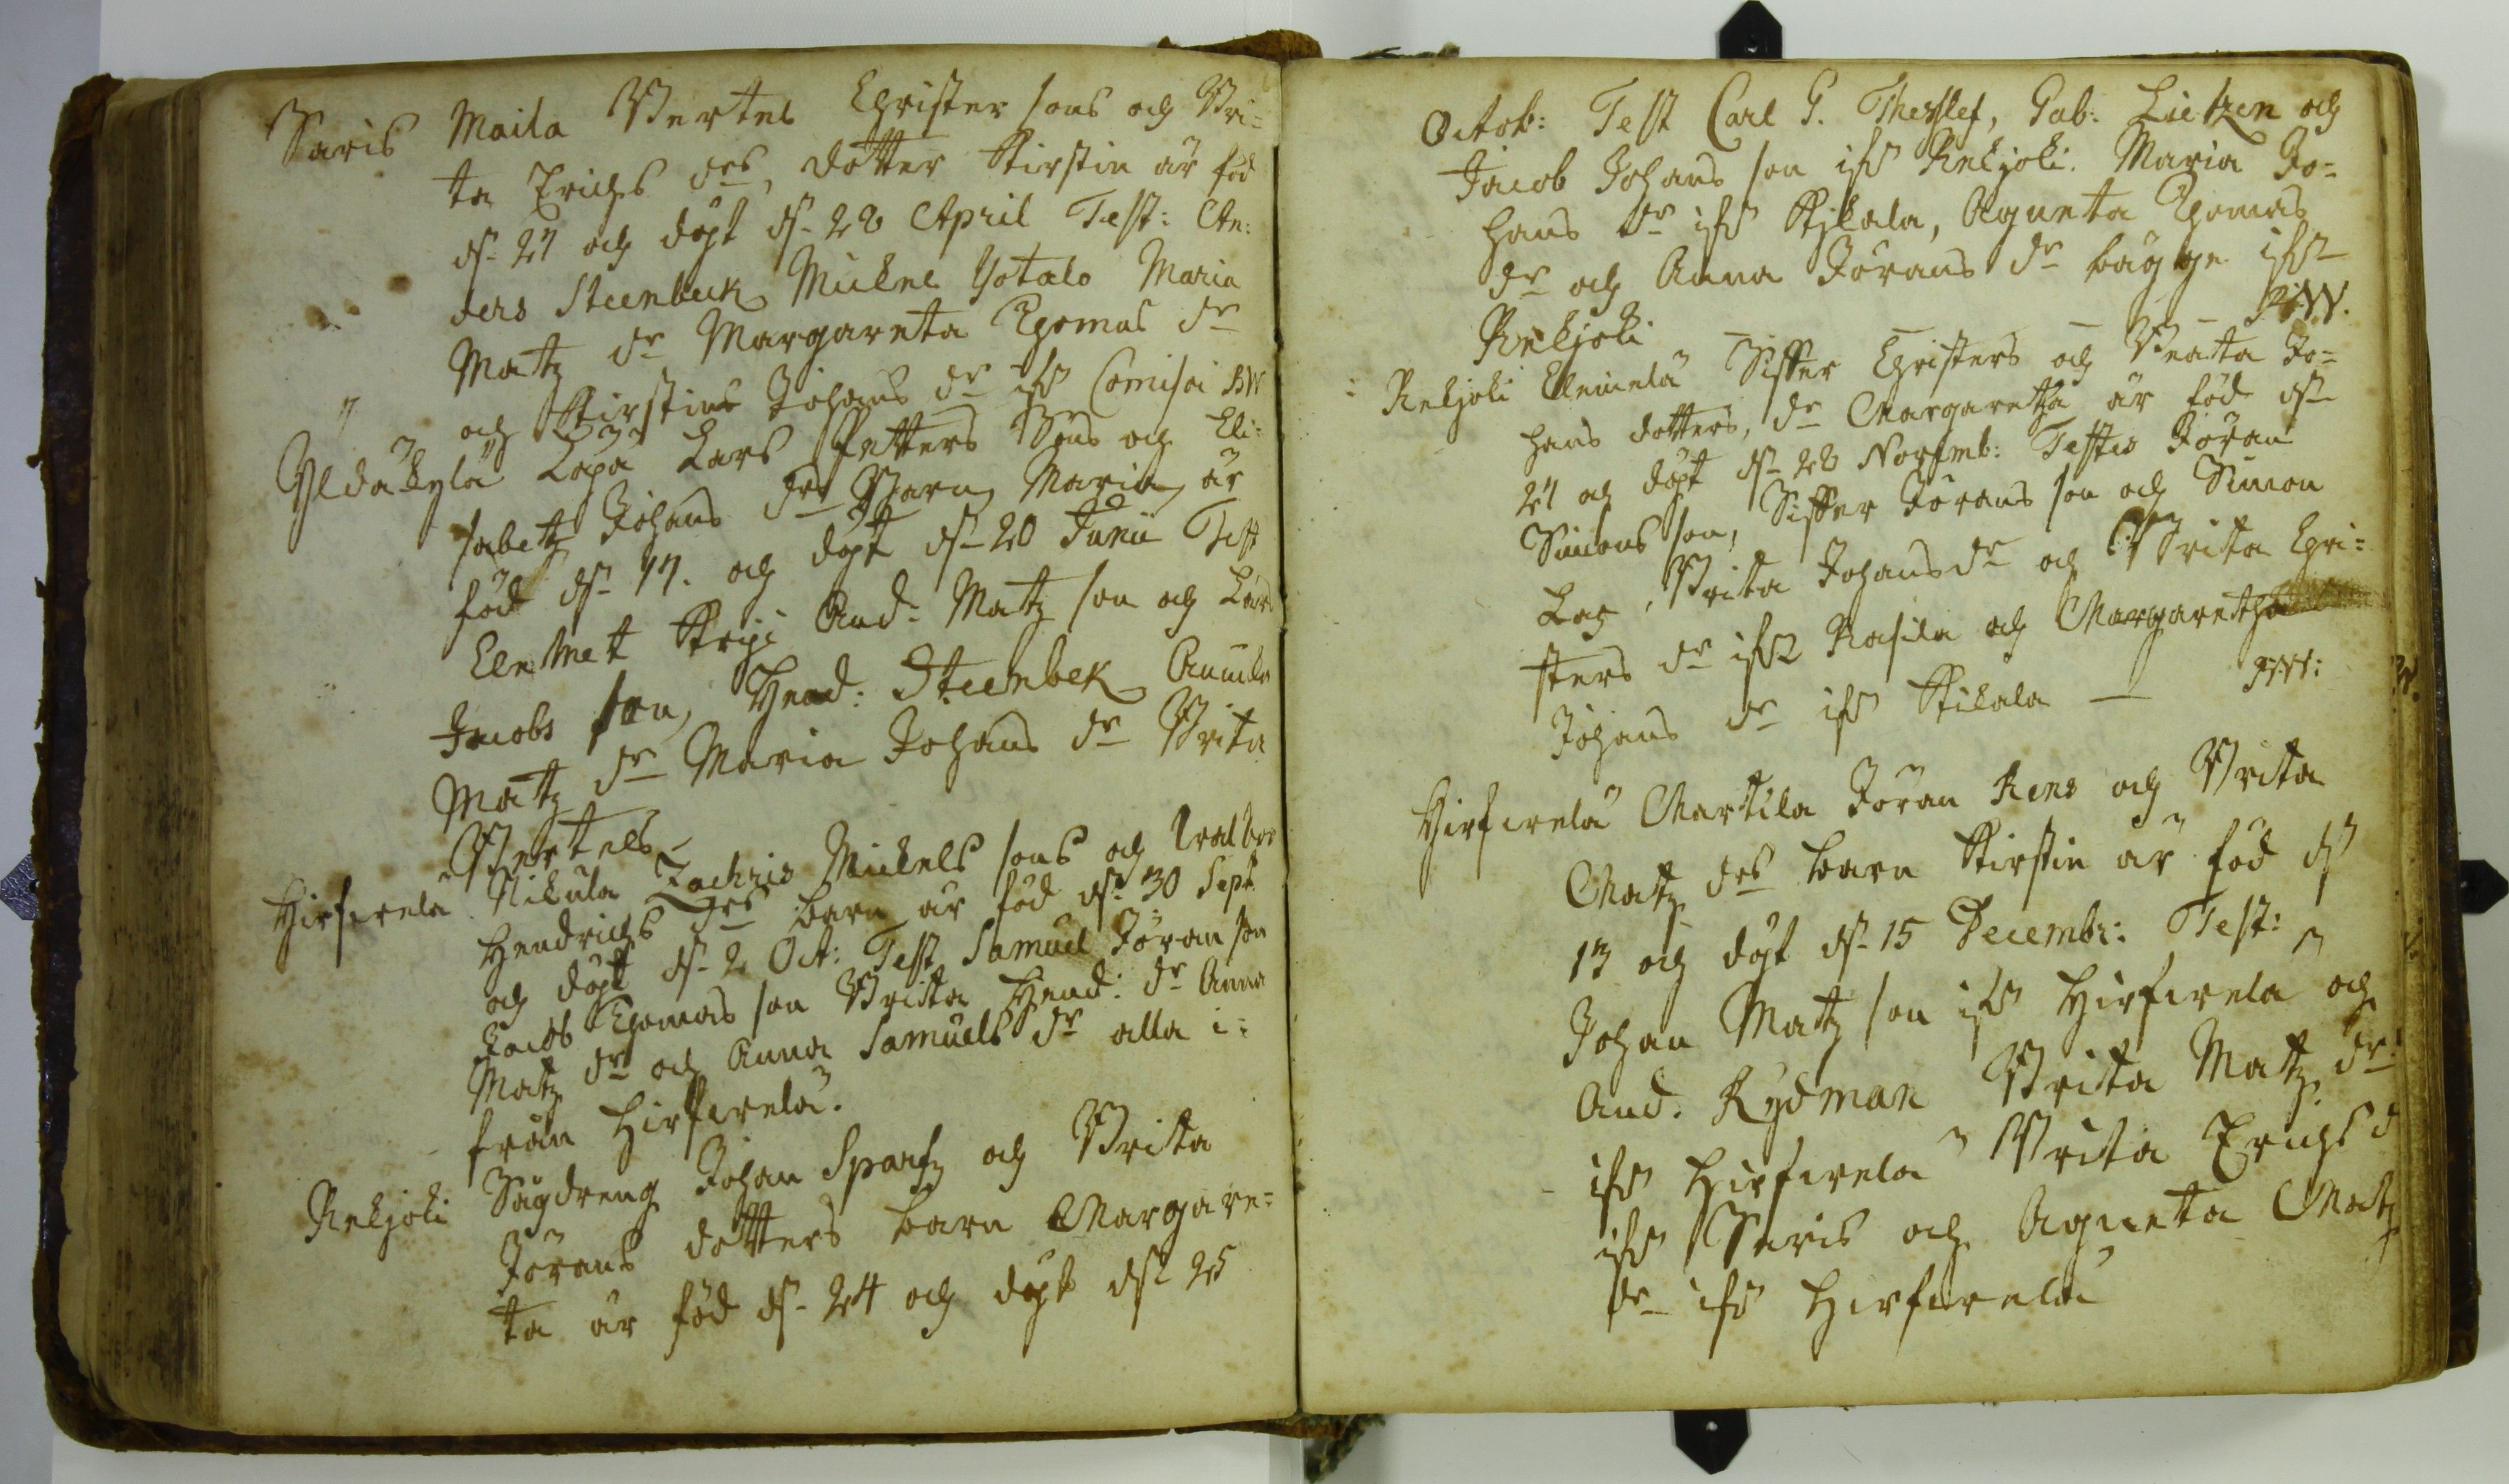 Saris Maila Bertel Christer sons och Bri=
ta Erichs drs, dotter Kirstin är föd
d. 27 och döpt d. 28 April Test: An:
ders Steenbeck Mickel Yotalo Maria
Matz dr Margareta Thomas dr
och Kirstin Johans dr ifr Comisai BW
Yldäkylä Lapä Lars Petters Sons och Eli:
sabetz Johans drs Barn Maria är
föd d. 17. och döpt d. 20 Junii Test
Clemet And: Matz son och Lars
Jacobs son, Hend: Steenbek Annika
Matz dr Maria Johans dr Brita
Bertels
Hirfvrela Nikula Zachris Mickels sons och Valbor
Hendrichs drs barn är föd d. 30 Sept
och döpt d. 2 Oct: Test Samuel Jöran son
Jacob Thomas son Brita Hend: dr Anna
Matz dr och Anna Samuels dr alla i=
från Hirfvrelä.
Rekjoki Sågdreng Johan Sparf och Brita
Jörans dotters barn Margare=
ta är föd d. 24 och döpt d. 25
Octob: Test Carl G. Thesslef, Gab: Lietzen och
Jacob Johans son ifr Rekjoki. Maria Jo=
hans dr ifr Kikala, Agneta Thomas
dr och Anna Jörans dr bägge ifr
Rekjoki
Rekjoki Siffer Christers och Beata Jo=
hans dotters, dr Margaretha är föd d.
27 och döpt d. 28 Novemb: Testes Jöran
Simons son, Siffer Jörans son och Simon
Brita Johans dr och Brita Chri=
sters dr ifr Rasila och Margaretha
Johans dr ifr Kikala
Hirfvrelä Martila Jöran Rens och Brita
Matz drs barn Kirstin är föd d
13 och döpt d. 15 Decembr: Test:
Johan Matz son ifr Hirfvrelä och
And. Rydman Brita Matz dr
ifr Hirfvrelä Brita Erichs d
ifr Saris och Agneta Matz
dr ifr Hirfvrelä